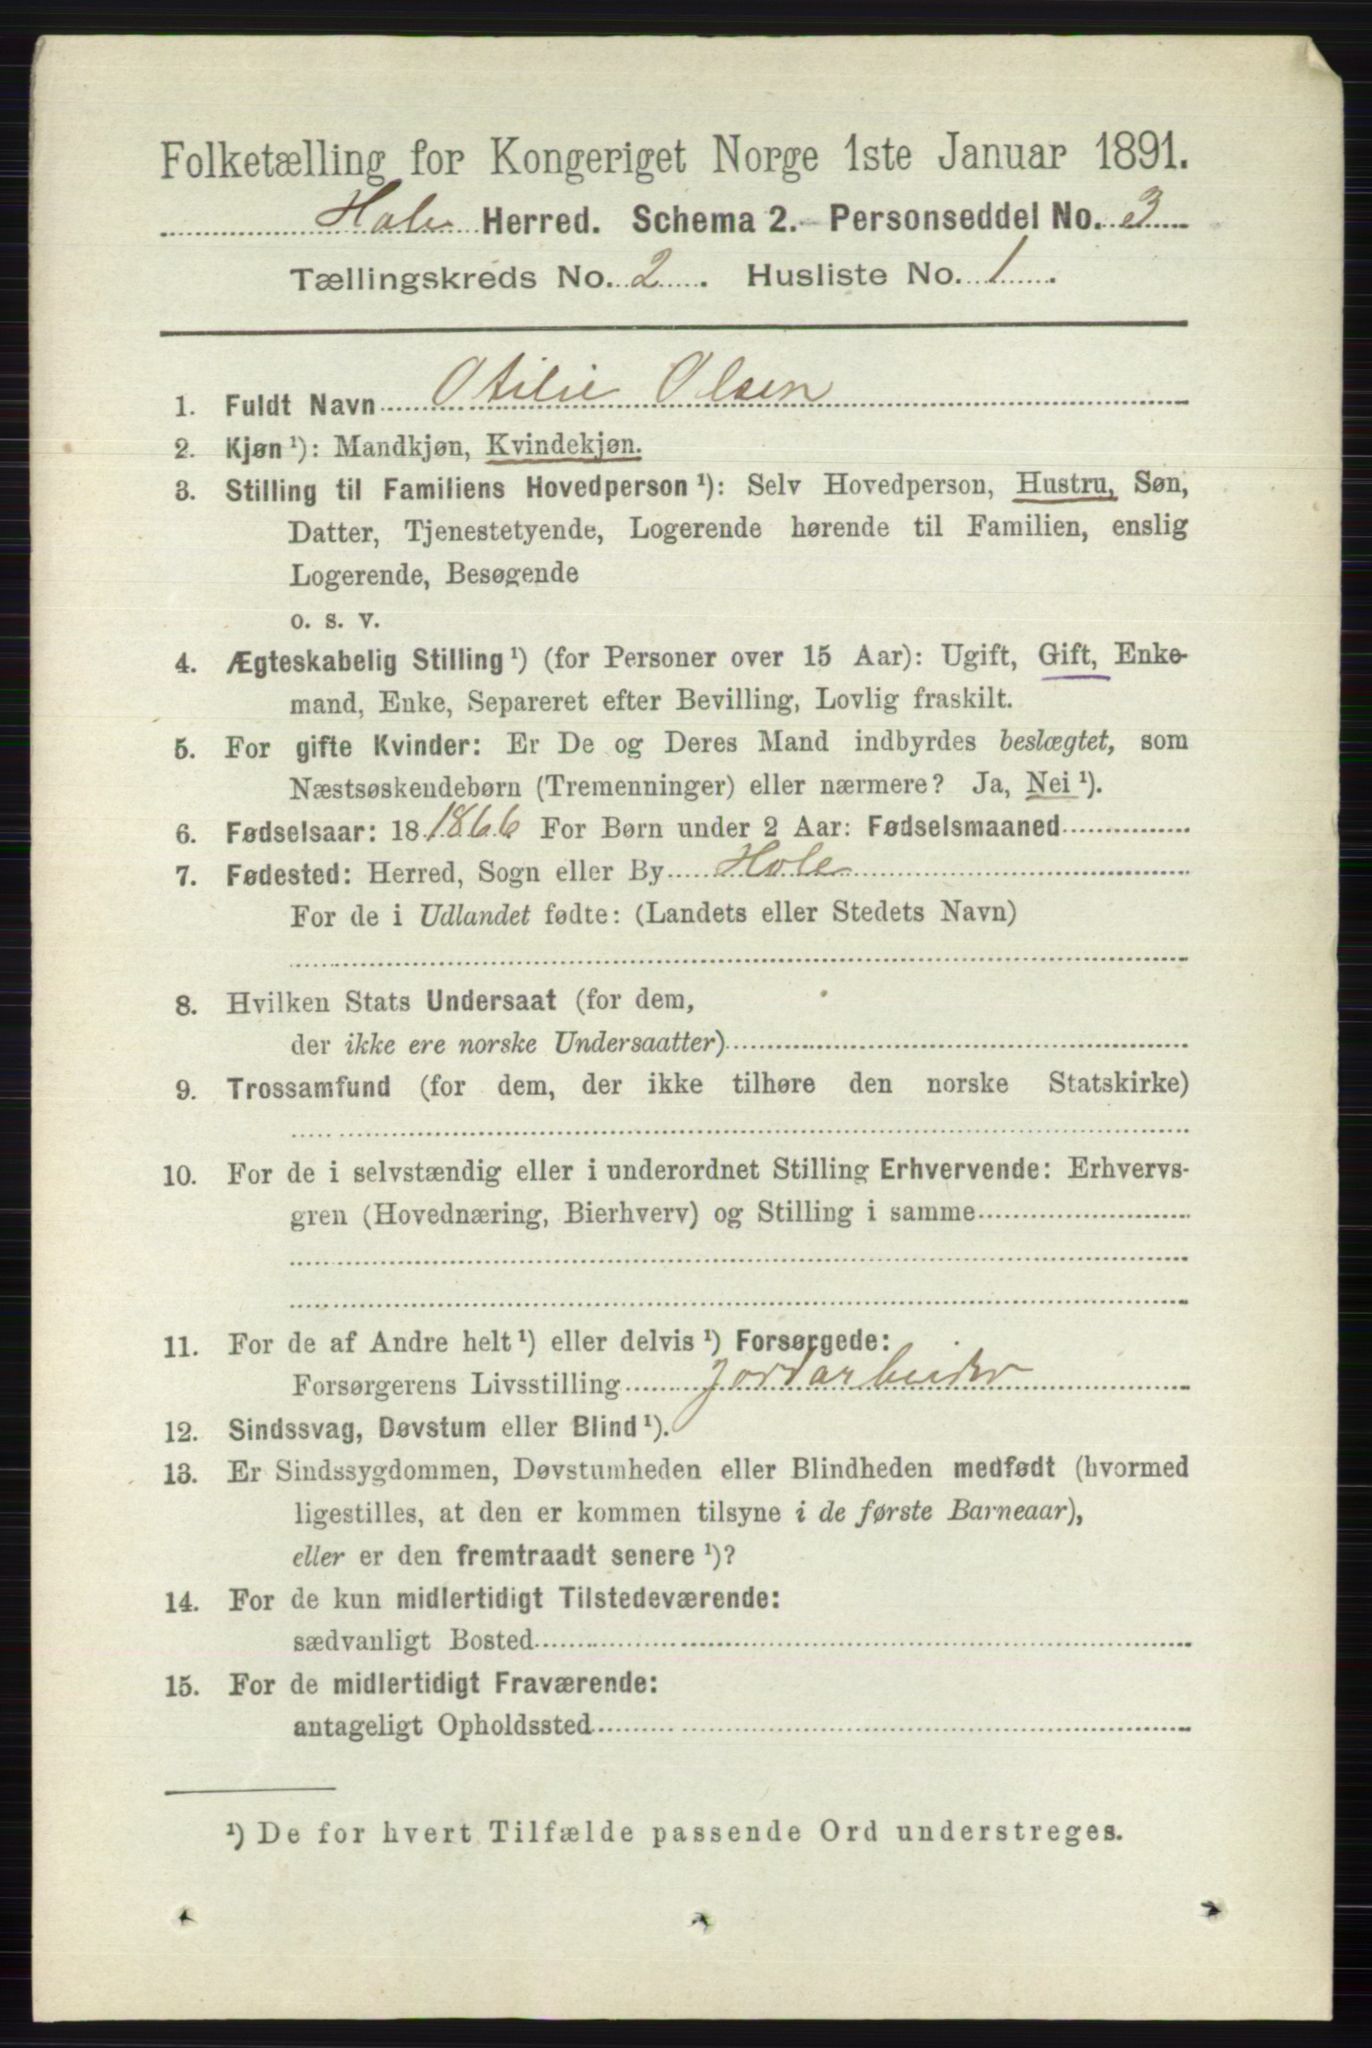 Folketælling for Kongeriget Norge 1ste Januar 1891.
Hole Herred. Schema 2. Personseddel No. 3
Tællingskreds No. 2. Husliste No. 1.
1. Fuldt Navn Otilie Olsen
2. Kjøn ¹): Mandkjøn, Kvindekjøn.
3. Stilling til Familiens Hovedperson ¹): Selv Hovedperson, Hustru, Søn,
Datter, Tjenestetyende, Logerende hørende til Familien, enslig
Logerende, Besøgende
o. s. v.
4. Ægteskabelig Stilling ¹) (for Personer over 15 Aar): Ugift, Gift, Enke-
mand, Enke, Separeret efter Bevilling, Lovlig fraskilt.
5. For gifte Kvinder: Er De og Deres Mand indbyrdes beslægtet, som
Næstsøskendebørn (Tremenninger) eller nærmere? Ja, Nei ¹).
6. Fødselsaar: 18 1866 For Børn under 2 Aar: Fødselsmaaned
7. Fødested: Herred, Sogn eller By Hole
For de i Udlandet fødte: (Landets eller Stedets Navn)
8. Hvilken Stats Undersaat (for dem,
der ikke ere norske Undersaatter)
9. Trossamfund (for dem, der ikke tilhøre den norske Statskirke)
10. For de i selvstændig eller i underordnet Stilling Erhvervende: Erhvervs-
gren (Hovednæring, Bierhverv) og Stilling i samme
11. For de af Andre helt ¹) eller delvis ¹) Forsørgede:
Forsørgerens Livsstilling Jordarbeider
12. Sindssvag, Døvstum eller Blind ¹).
13. Er Sindssygdommen, Døvstumheden eller Blindheden medfødt (hvormed
ligestilles, at den er kommen tilsyne i de første Barneaar),
eller er den fremtraadt senere ¹)?
14. For de kun midlertidigt Tilstedeværende:
sædvanligt Bosted
15. For de midlertidigt Fraværende:
antageligt Opholdssted
¹) De for hvert Tilfælde passende Ord understreges.